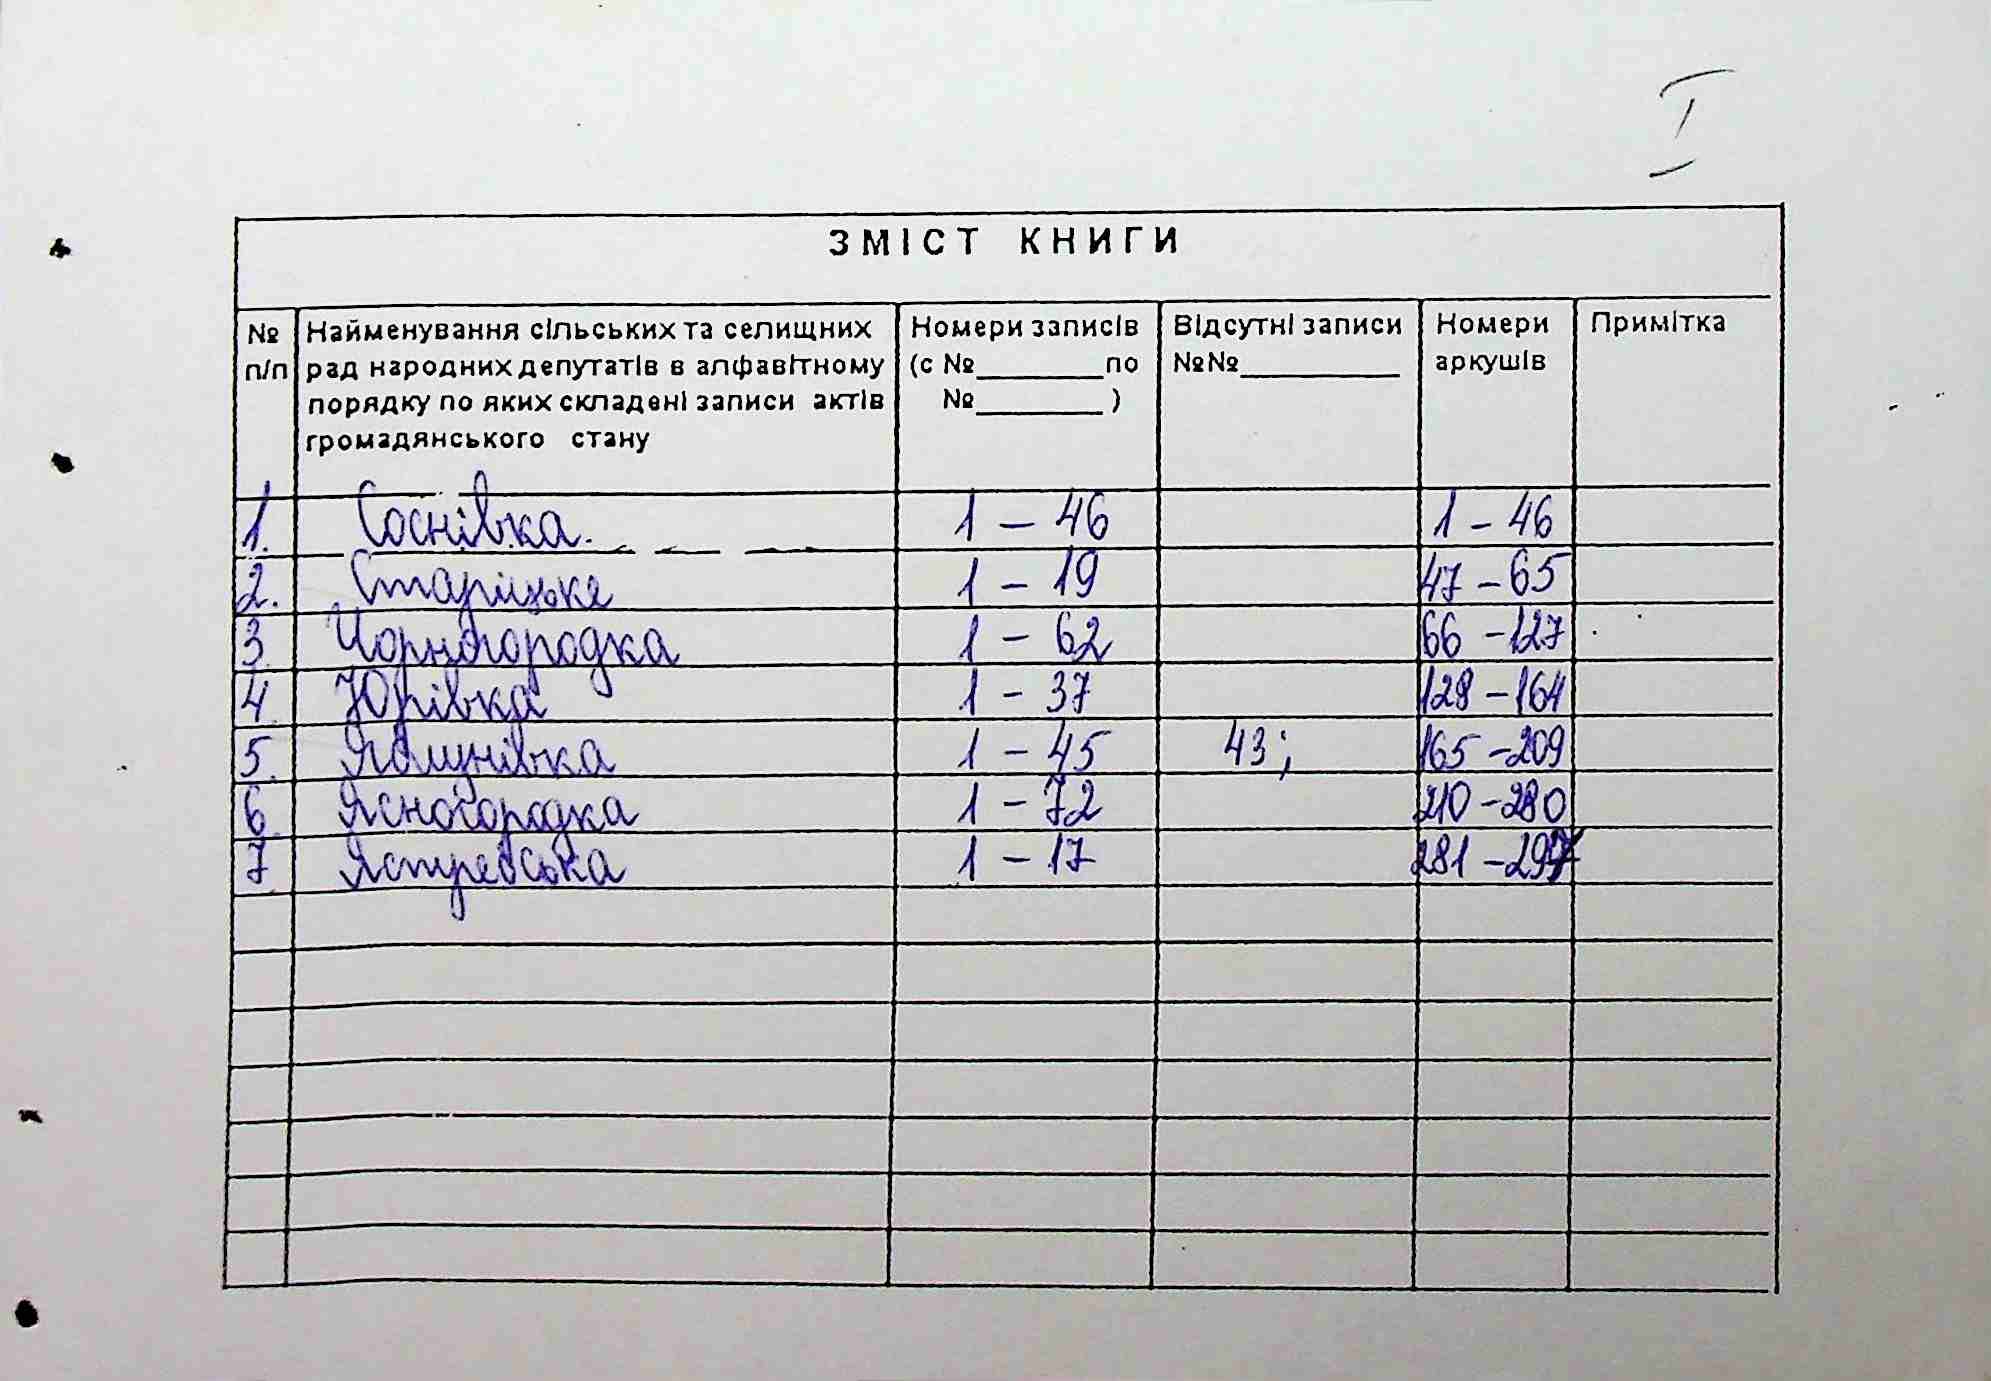 I
ЗМІСТ КНИГИ
№ п/п Найменування сільських та селищних рад народних депутатів в алфавітному порядку по яких складені записи актів громадянського стану Номери записів (с №________ по №________ ) Відсутні записи №№__________ Номери аркушів Примітка
1. Соснівка. 1 – 46 1 – 46
2. Старицьке 1 – 19 47 – 65
3. Чорногородка 1 – 62 66 – 127
4. Юрівка 1 – 37 128 – 164
5. 1 – 45 43; 165 – 209
6. Ясногородка 1 – 72 210 – 280
7. 1 – 17 281 – 297